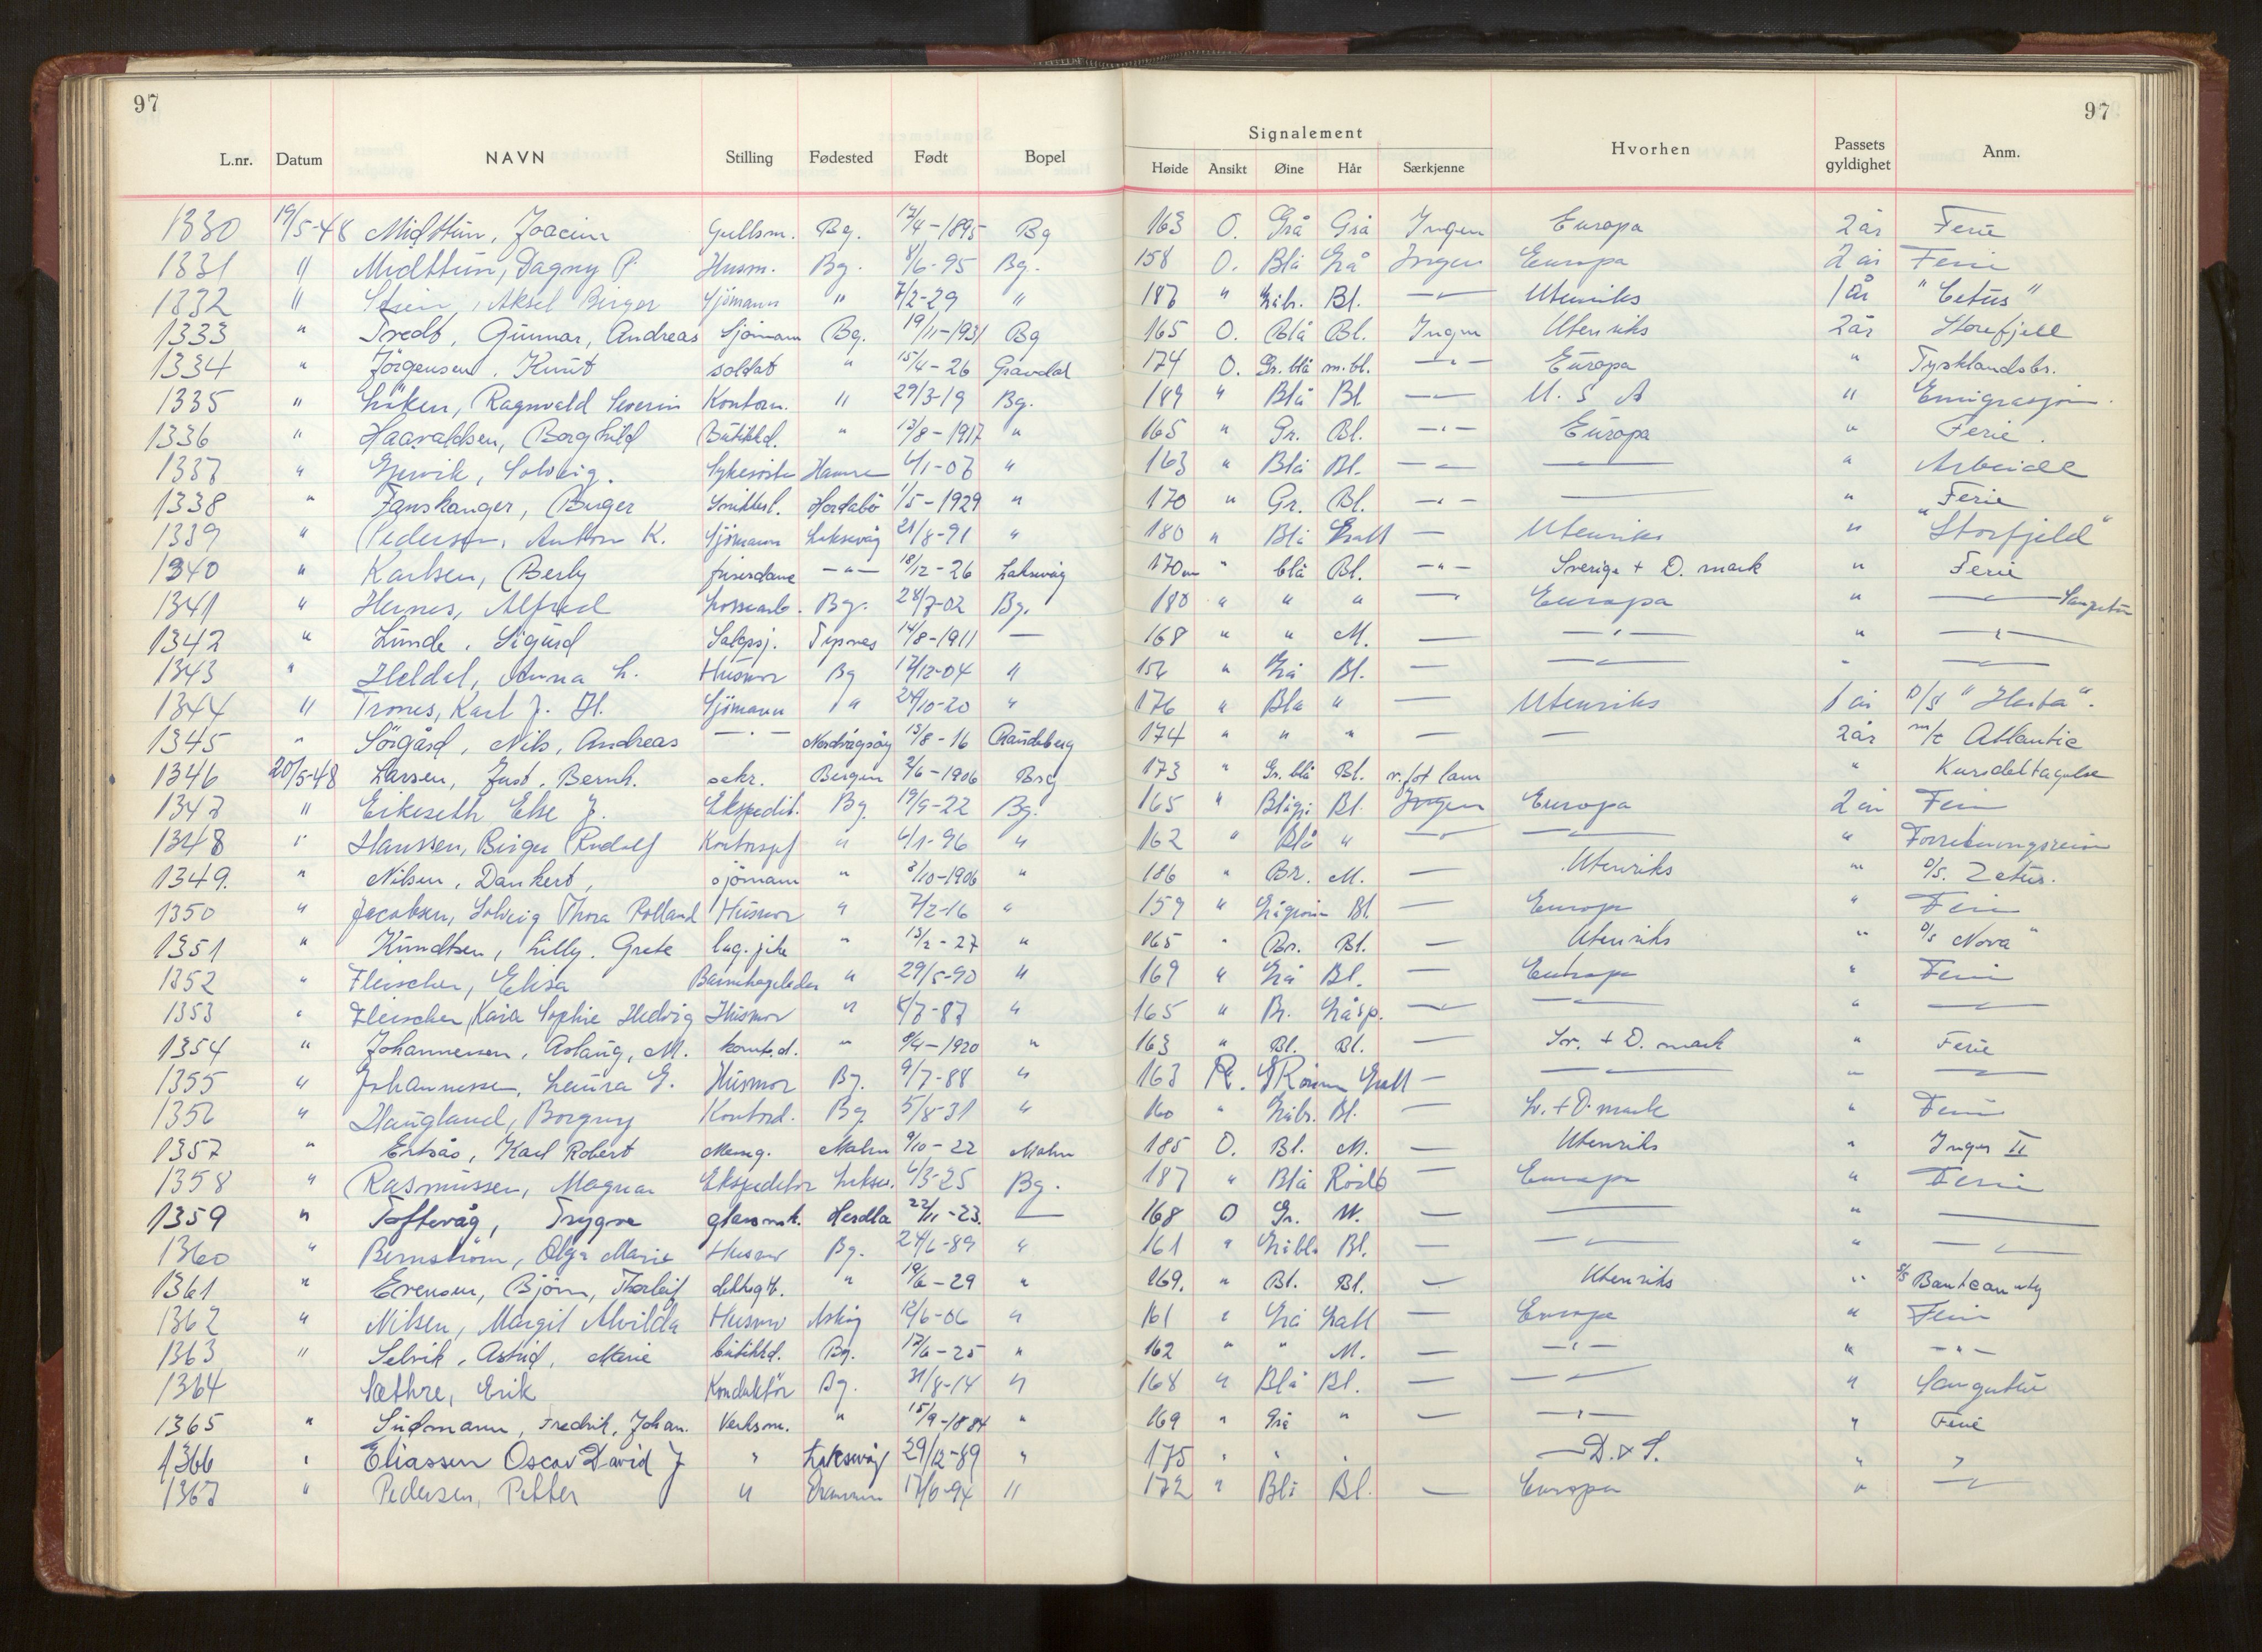 97
97
Signalement
L.nr. Datum NAVN Stilling Fødested Født Bopel Høide Ansikt Øine Hår Særkjenne Hvorhen Passets gyldighet Anm.
1330 19/5-48 Midttun, Joacim Gullsm. Bg. 17/4-1895 Bg 163 O. Grå Grå Ingen Europa 2 år Ferie
1331 " Midttun, Dagny P. Husm. Bg. 8/6-95 Bg. 158 O. Blå Grå Ingen Europa 2 år Ferie
1332 " Aksel Birger Sjömann " 7/2-29 " 187 " Gråbr. Bl. —"— Utenriks 1 år "Cetus"
1333 " Tvedt, Gunnar, Andreas Sjömann Bg. 19/11-1931 Bg 165 O. Blå Bl. Ingen Utenriks 2 år Storefjell
1334 " Jörgensen, Knut soldat " 15/4-26 Gravdal 174 O. Gr.blå m.bl. —"— Europa " Tysklandsbr.
1335 " Löken, Ragnvald Severin Kontorm. " 29/3-19 Bg. 189 " Blå Bl —"— U.S.A " Emigrasjon.
1336 " Haavaldsen, Borghild Butikkd. " 12/8-1917 " 165 " Gr. Bl. —"— Europa " Ferie.
1337 " Gjervik, Solveig. Sykesöster Hamre 4/1-07 " 163 " Blå Bl. —"— — " Arbeide
1338 " Fanskanger, Birger Snikkerl. Hordabö 1/5-1929 " 170 " Gr. Bl. —"— — " Ferie
1339 " Pedersen, Anton K. Sjömann Laksevåg 21/8-91 " 180 " Blå Gratt — Utenriks " "Storfjeld"
1340 " Karlsen, Berly frisördame —"— 18/12-26 Laksevåg 170cm " blå Bl. —"— Sverige + D.mark " Ferie
1341 " Hernes, Alfred Lossearb. Bg. 24/7-02 Bg. 180 " " " —"— Europa " —"— Sangertur
1342 " Lunde, Sigurd Salgssj. 14/8-1911 — 168 " " M. — —"— " —"—
1343 " Heldal, Anna L. Husmor Bg 17/12-04 " 156 " Grå Bl. — —"— " —"—
1344 " Trones, Karl J. H. Sjömann " 24/10-20 " 176 " Blå " — Utenriks 1 år D/S "Herta".
1345 " Sörgård, Nils, Andreas —"— Nordvågsöy 13/8-16 Randaberg 174 " " " — — 2 år m/t Atlantic
1346 20/5-48 Larsen, Just, Bernh. sekr. Bergen 2/6-1906 Brg 173 " Gr.blå Bl. v.fot lam " Kursdeltagelse
1347 " Eikeseth Else J. Ekspedit. Bg. 19/9-22 Bg. 165 " Blågr. Bl. Ingen Europa 2 år Ferie
1348 " Hanssen, Birger Rudolf Kontorsjef " 4/1-96 " 162 " Blå " —"— —"— " Forretningsreise
1349. " Nilsen, Dankert, sjömann " 3/10-1906 " 186 " Br. M. — Utenriks " D/S. Zetus.
1350 " Jacobsen, Solveig Thora Rolland Husmor " 7/2-16 " 159 " Grågrönn Bl — Europa " Ferie
1351 " Knudtsen, Lilly, Grete lug.pike " 13/2-27 " 165 " Br. Bl. — Utenriks " D/S Nova"
1352 " Fleischer, Elisa Barnehageleder " 29/5-90 " 169 " Grå Bl. — Europa " Ferie
1353 " Fleischer, Kaia Sophie Hedvig Husmor " 8/7-87 " 165 " Br. Gråsp. —"— —"— " —"—
1354 " Johannessen, Aslaug, M. kont.d. " 9/4-1920 " 163 " Bl. Bl. — Sv. + D.mark " Ferie
1355 " Johannessen, Laura G. Husmor Bg. 9/7-88 " 163 R. Gratt — —"— " —
1356 " Haugland, Borgny Kontord. Bg. 5/8-31 " 160 " Gråbr. Bl. — Sv.+D.mark " Ferie
1357 " Ertsås, Karl Robert Messeg. Malm 9/10-22 Malm 185 O. Bl. M. — Utenriks " Inger II
1358 " Rasmussen, Magnar Ekspeditör Lakse. 4/3-25 Bg. 187 " Blå Rödb — Europa " Ferie
1359 " Toftevåg, Trygve glassmt. Herdla 22/11-23. — 168 O Gr. M. — — " —
1360 " Bernström, Olga Marie Husmor Bg. 24/6-89 " 161 " Gråbl. Bl. — —"— " —"—
1361 " Evensen, Bjørn, Thorleif dekksgt. " 19/6-29 " 169. " Bl. Bl. — Utenriks " S/S Banteam
1362 " Nilsen, Margit Alvilda Husmor Askøy 12/6-06 " 161 " Grå Gratt — Europa " Ferie
1363 " Selvik, Astrid, Marie butikkd. Bg. 17/6-25 " 162 " " M. — —"— " —"—
1364 Sæthre, Erik Konduktör Bg. 31/8-14 " 168 " Blå Bl. — —"— " Sangertur
1365 " Sudmann, Fredrik, Johan. Verksm. " 15/9-1884 " 169 " Grå " — —"— " Ferie
1366 " Eliassen Oscar David J " Laksevåg 29/12-89 " 175 " " " —D.& S. " "
1367 " Pedersen, Petter " 17/6-94 " 172 " Blå Bl. — Europa " —"—